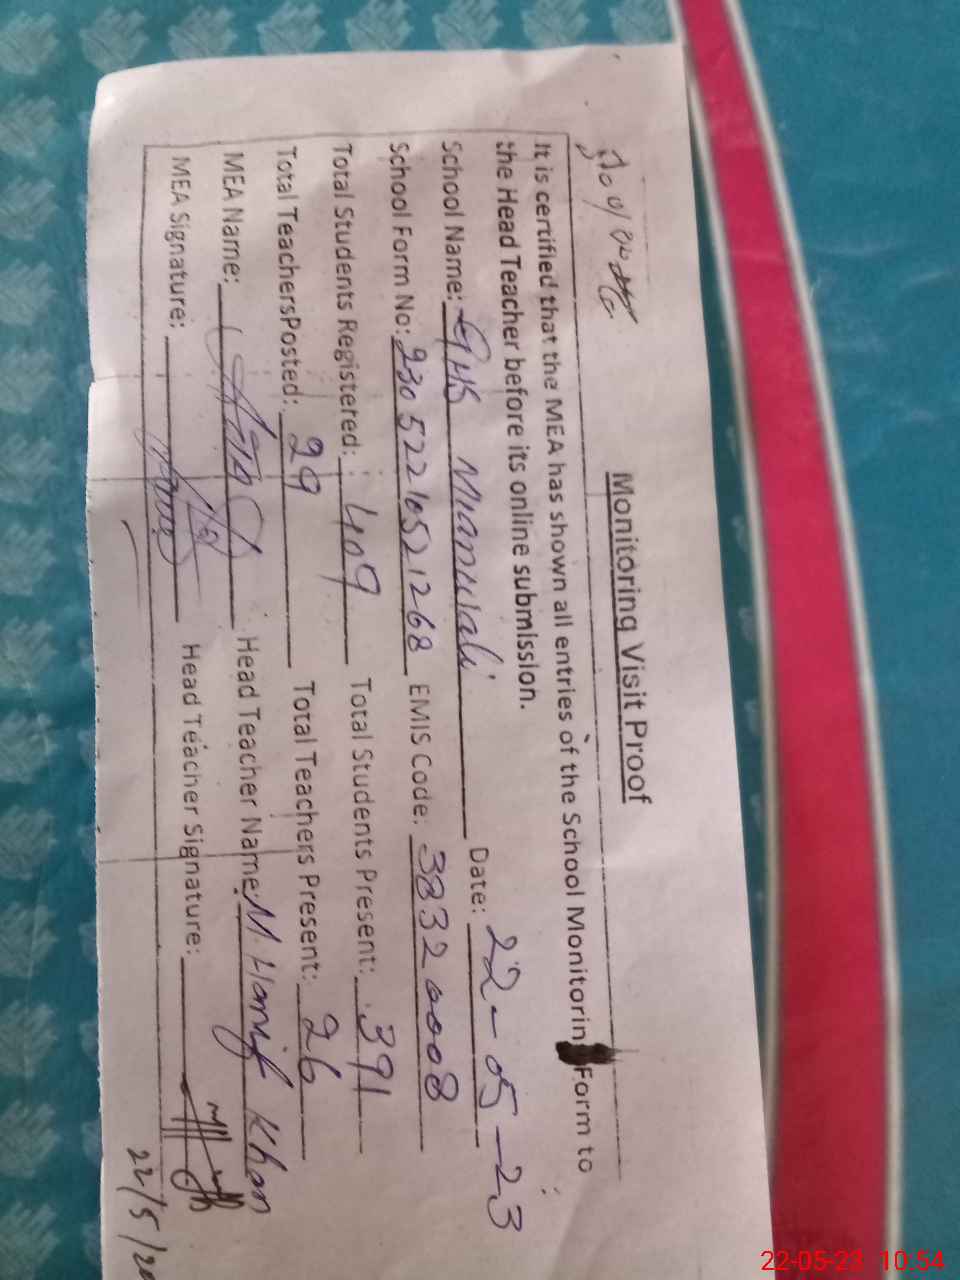 Monitoring Visit Proof
It is certified that the MEA has shown all entries of the School Monitorin Form to
the Head Teacher before its online submission.
School Name: GHS Mianwali Date: 22-05-23
School Form No: 23052210521268 EMIS Code: 38320008
Total Students Registered: 409 Total Students Present: 391
Total TeachersPosted: 29 Total Teachers Present: 26
MEA Name: Head Teacher Name: M. Hanif Khan
MEA Signature: Head Teacher Signature:
22/5/20
22-05-23 10:54